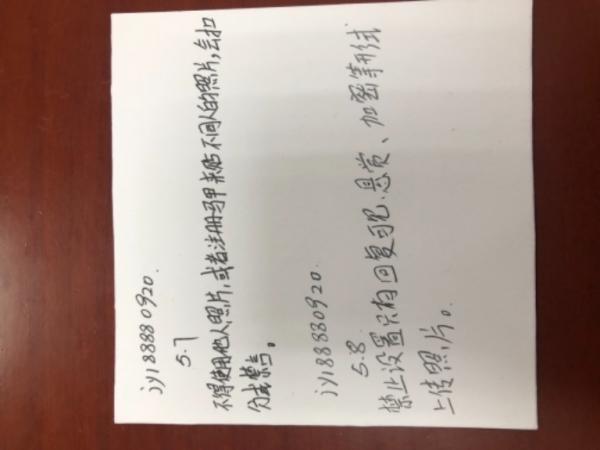 jy188880920.
5.7
不得使用他人照片,或者注册马甲来贴不同人的照片,会扣
分或禁言。
jy188880920.
5.8
禁止设置只有回复可见.悬赏、加密等形式
上传照片。